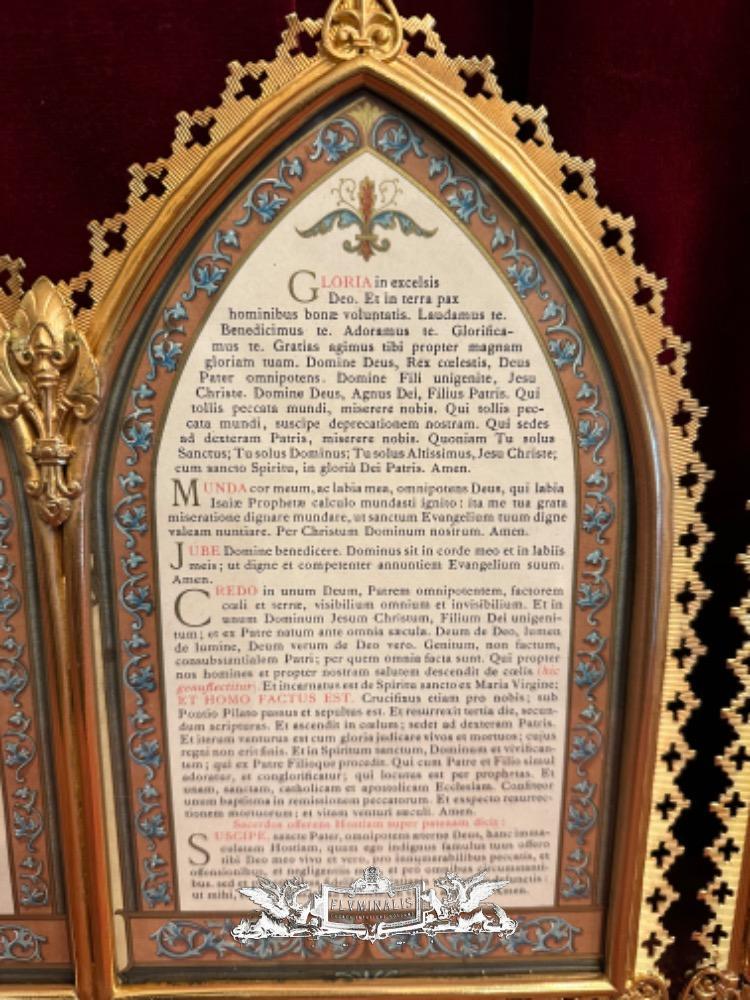 GLORIA in excelsis
Deo. Et in terra pax
hominibus bonæ voluntatis. Laudamus te.
Benedicimus te. Adoramus te. Glorifica-
mus te. Gratias agimus tibi propter magnam
gloriam tuam. Domine Deus, Rex cœlestis, Deus
Pater omnipotens. Domine Fili unigenite, Jesu
Christe. Domine Deus, Agnus Dei, Filius Patris. Qui
tollis peccata mundi, miserere nobis. Qui tollis pec-
cata mundi, suscipe deprecationem nostram. Qui sedes
ad dexteram Patris, miserere nobis. Quoniam Tu solus
Sanctus; Tu solus Dominus; Tu solus Altissimus, Jesu Christe;
cum sancto Spiritu, in gloriâ Dei Patris. Amen.
MUNDA cor meum, ac labia mea, omnipotens Deus, qui labia
Isaiæ Prophetæ calculo mundasti ignito: ita me tua grata
miseratione dignare mundare, ut sanctum Evangelium tuum digne
valeam nuntiare. Per Christum Dominum nostrum. Amen.
JUBE Domine benedicere. Dominus sit in corde meo et in labiis
meis; ut digne et competenter annuntiem Evangelium suum.
Amen.
CREDO in unum Deum, Patrem omnipotentem, factorem
cœli et terræ, visibilium omnium et invisibilium. Et in
unum Dominum Jesum Christum, Filium Dei unigeni-
tum; et ex Patre natum ante omnia sæcula. Deum de Deo, lumen
de lumine, Deum verum de Deo vero. Genitum, non factum,
consubstantialem Patri; per quem omnia facta sunt. Qui propter
nos homines et propter nostram salutem descendit de cœlis (hic
genuflectitur). Et incarnatus est de Spiritu sancto ex Maria Virgine;
ET HOMO FACTUS EST. Crucifixus etiam pro nobis; sub
Pontio Pilato passus et sepultus est. Et resurrexit tertia die, secun-
dum scripturas. Et ascendit in cœlum; sedet ad dexteram Patris.
Et iterum venturus est cum gloria judicare vivos et mortuos; cujus
regni non erit finis. Et in Spiritum sanctum, Dominum et vivifican-
tem; qui ex Patre Filioque procedit. Qui cum Patre et Filio simul
adoratur, et conglorificatur; qui locutus est per prophetas. Et
unam, sanctam, catholicam et apostolicam Ecclesiam. Confiteor
unum baptisma in remissionem peccatorum. Et exspecto resurrec-
tionem mortuorum; et vitam venturi sæculi. Amen.
Sacerdos offerens Hostiam super patenam dicit:
SUSCIPE, sancte Pater, omnipotens æterne Deus, hanc imma-
culatam Hostiam, quam ego indignus famulus tuus offero
tibi Deo meo vivo et vero, pro innumerabilibus peccatis, et
offensionibus, et negligentiis et pro omnibus circumstanti-
bus, sed et
ut mihi, Amen.
FLUMINALIS